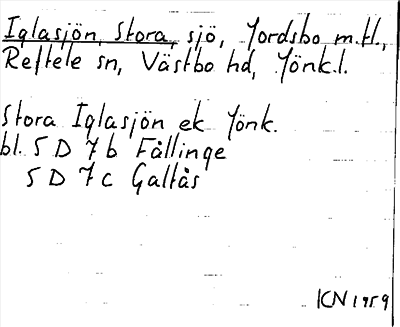 Iglasjön, Stora, sjö, Jordsbo m.fl.,
Reftele sn, Västbo hd, Jönk.l.
Stora Iglasjön ek Jönk.
bl. 5 D 7 b Fållinge
5 D 7 c Galtås
KN 1959